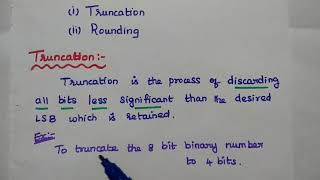 (i) Truncation
(ii) Rounding
Truncation:-
Truncation is the process of discarding
all bits less significant than the desired
LSB which is retained.
Ex:-
To truncate the 8 bit binary number
to 4 bits.